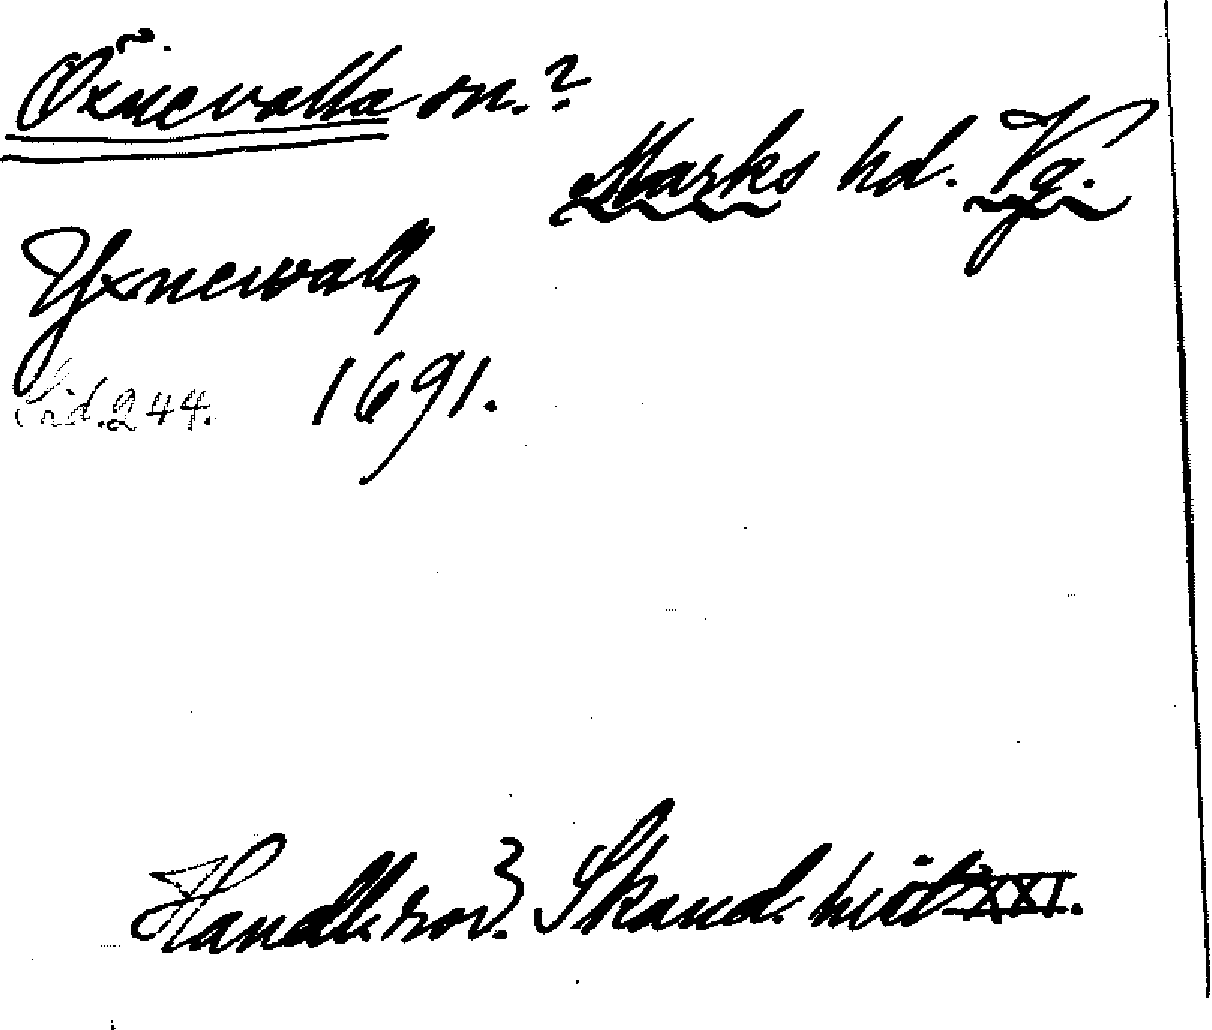 Öxnevalla sn.?
Marks hd. Vg.
Yxnewall,
Sid. 244. 1691.
Handl. rör. Skand. hist XXI.